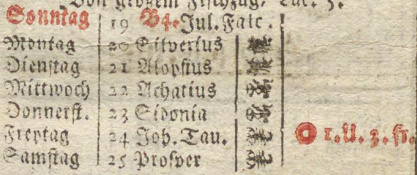 Von großem Fischzug. Luc. 5.
Sonntag 19 B4. Jul. Falc.
Montag 20 Silverius
Dienstag 21 Aloysius
Mittwoch 22 Achatius
Donnerst. 23 Sidonia
Freytag 24 Joh. Tau. r. U. z. fr.
Samstag 25 Prosper